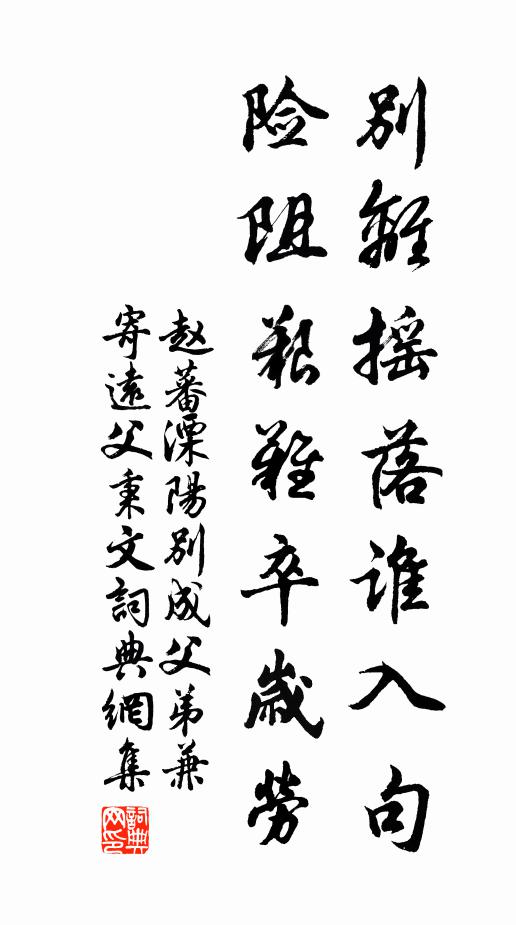 别離摇落谁入句
险阻艱難卒歲勞
赵蕃溧陽别成父弟兼
寄遠父秉文詞典網集
詞典
网印